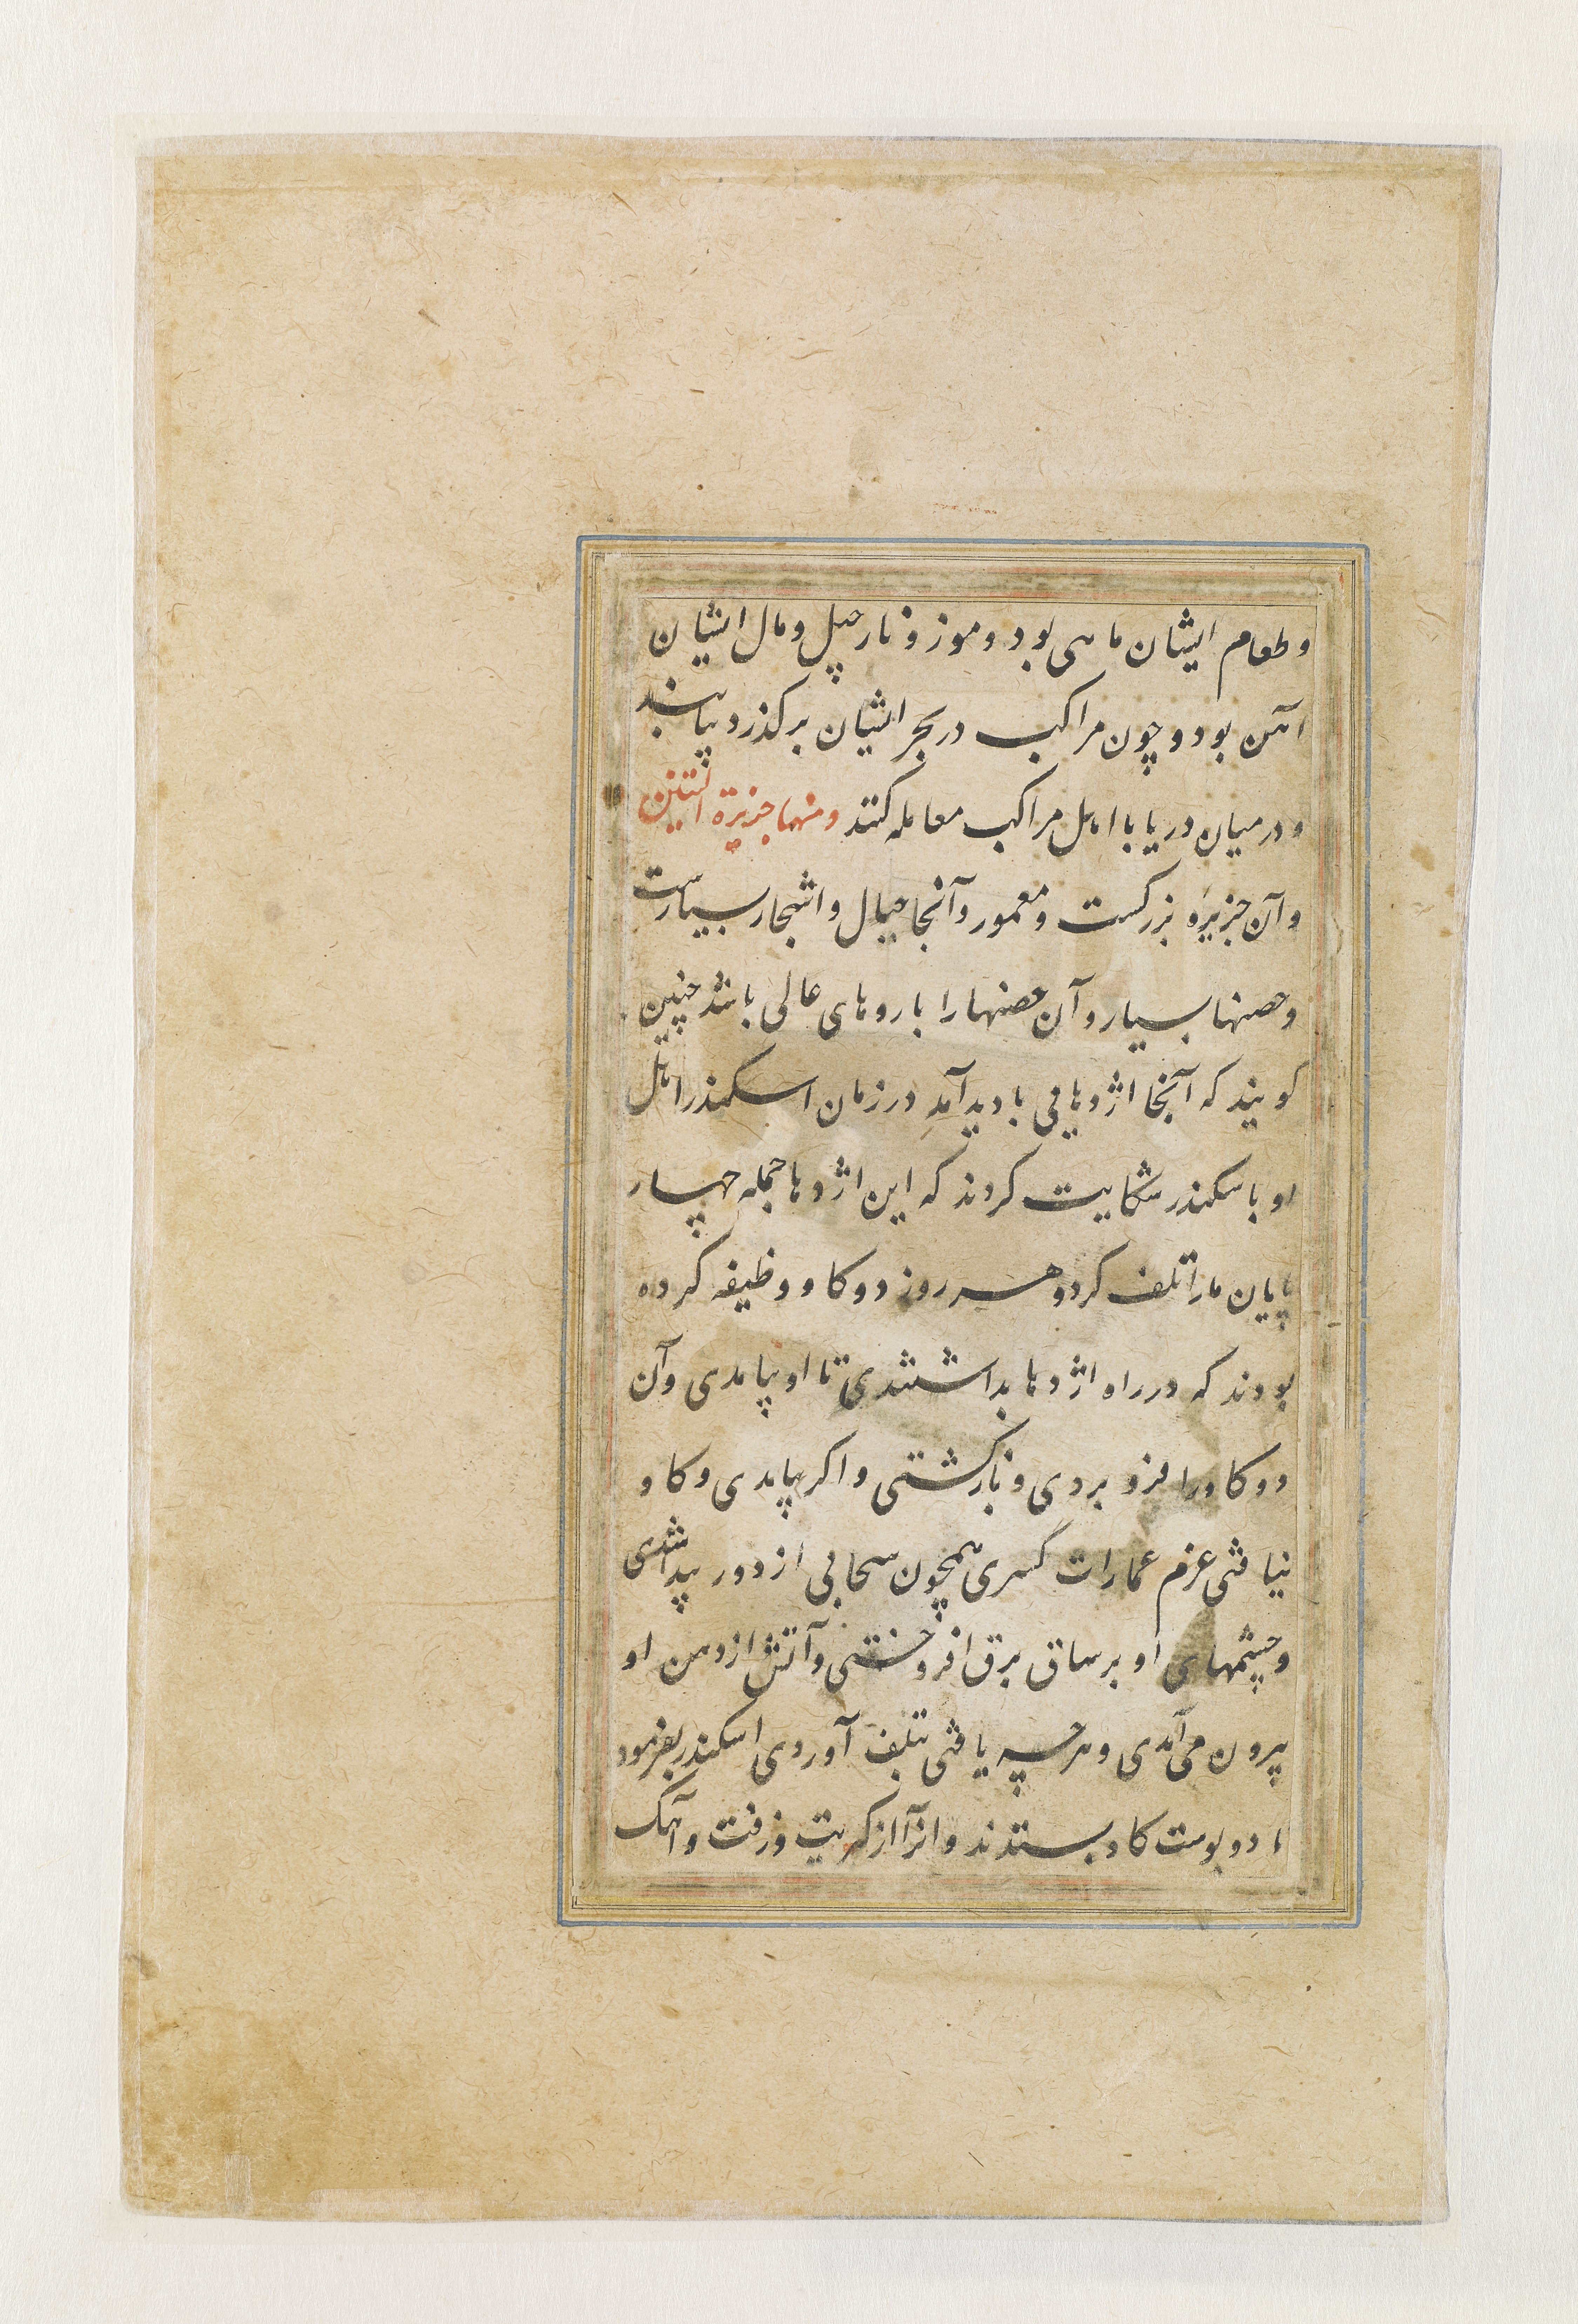 وطعام ایشان ماهی بود و موز و نارجیل و مال ایشان
آهن بود و چون مراکب در بحر ایشان برگذرد بیایند
و در میان دریا با اهل مراکب معامله کنند ومنها جزیرة التنین
و آن جزیره بزرگست و معمور و آنجا جبال و اشجار بسیارست
و حصنها بسیار و آن حصنها را باروهای عالی باشد چنین
کویند که آنجا اژدهایی بادید آمد در زمان اسکندر اهل
او باسکندر شکایت کردند که این اژدها جمله چهار
پایان ما را تلف کرد و هر روز دو کاو وظیفه کرده
بودند که در راه اژدها بداشتندی تا او بیامدی و آن
دو کاو را فرو بردی و بازکشتی و اکر بیامدی و کاو
نیافتی عزم عمارات کردی همچون سحابی از دور پیدا شدی
و چشمهای او برسان برق افروختی و آتش از دهن او
بیرون می آمدی و هرچه یافتی بتلف آوردی اسکندر بفرمود
تا دو پوست کاو بستدند و انرا از کبریت و زفت و آهک